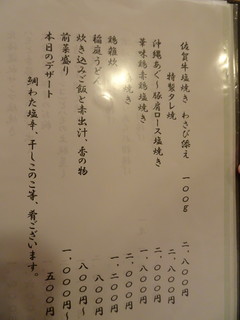 佐賀牛塩焼き わさび添え 一〇〇g 二、八〇〇円
特製タレ焼 二、八〇〇円
沖縄あぐー豚肩ロース塩焼き 一、八〇〇円
華味鶏赤鶏塩焼き
焼き
鶏雑炊
稲庭うどん 八〇〇円
炊き込みご飯と赤出汁、香の物 八〇〇円〜
前菜盛り 一、〇〇〇円〜
本日のデザート 五〇〇円
鯛わた塩辛、干しこのこ等、肴ございます。